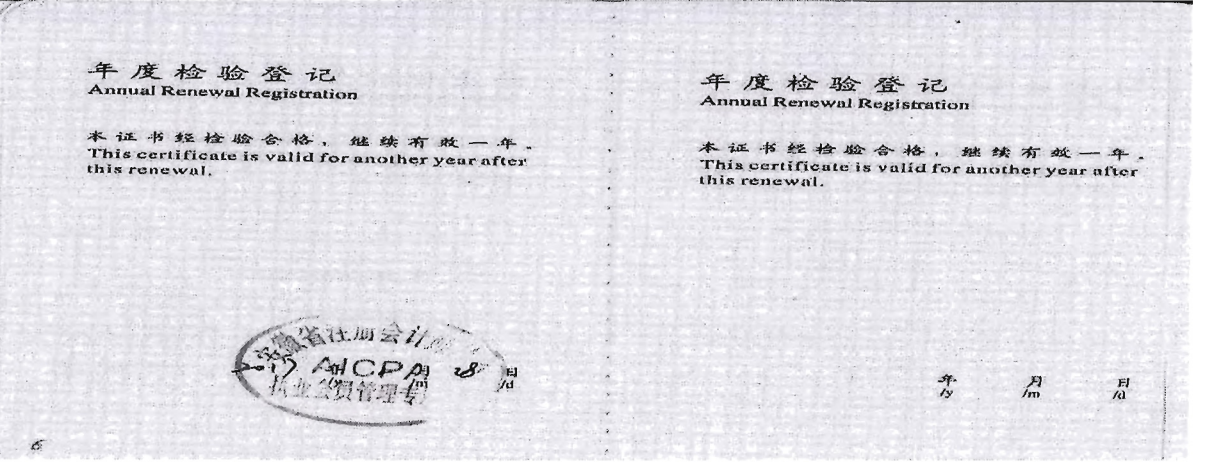 年度检验登记
Annual Renewal Registration
本证书经检验合格，继续有效一年。
This certificate is valid for another year after
this renewal.
安徽省注册会计
AHCPA
执业会员管理专
2017 年 月 28 日
/y /m /d
6
年度检验登记
Annual Renewal Registration
本证书经检验合格，继续有效一年。
This certificate is valid for another year after
this renewal.
年 月 日
/y /m /d